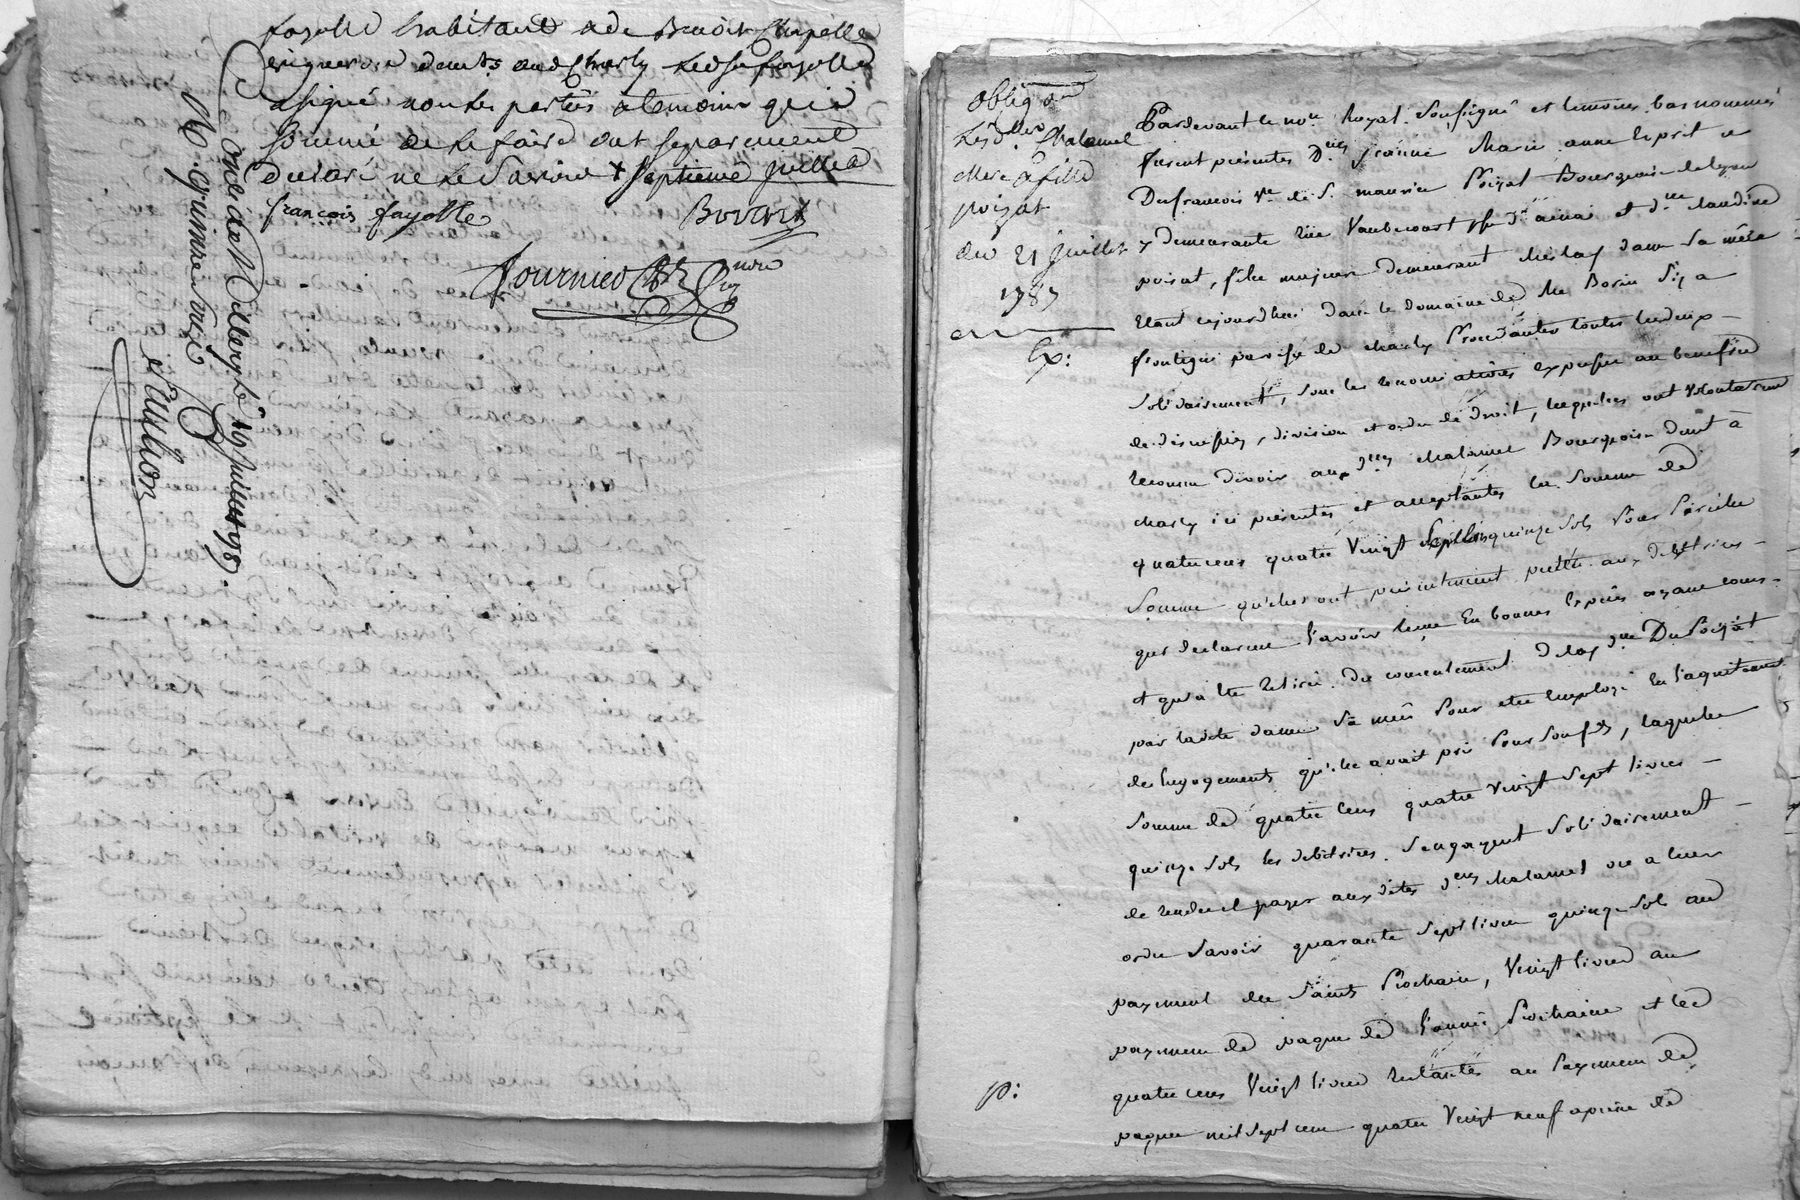 fayolle habitant & de Benoit Chapelle
vigneron dud. Charly led. sr fayolle
a signé non les parties & temoins qui
sommé de le faire ont separement
declaré ne le savoir + septieme juillet
françois fayolle Bovard
fournier
Controlé a St Genis le 19 juillet 1787.
R. quinze sols
Oblig on
les dlles Chalamel
Mere & fille
poizat
du 21 juillet
1787
Ex:
Pardevant le nore Royal soussigné et temoins bas nommés
furent presentes Dlles jeanne Marie anne Esprit
Dufrancois ve de S. maurice Poizat Bourgeois de Lyon
y demeurante rue Vaubecourt psse d'ainai et dlle claudine
poizat, fille majeure demeurant chès lad. dame sa mère
Etant aujourdhui dans le domaine de Me Borin sis a
frontigni parroisse de charly Procedantes toutes les deux
solidairement, sous les renonciations expresses au benefice
de discussion, division et ordre de droit, lesquelles ont volontairement
reconnu devoir aux dlles chalamel Bourgeoises dud. à
charly ici présentes et acceptantes la somme de
quatre cens quatre vingt sept livres quinze sols Pour Pareille
somme qu'elles ont présentement prêtée aux debitrices
qui declarent l'avoir reçue En bonnes Espèces ayant cours
et qu'a été retirée du consentement de lad. dlle Du Poizat
par ladite dame sa mère Pour etre Employé En l'aquittement
des Engagements qu'elle avait pris Pour son fils, laquelle
somme de quatre cens quatre vingt sept livres
quinze sols les debitrices s'engagent solidairement
de rendre et payer auxdites dlles chalamel ou a leur
ordre savoir quarante sept livres quinze sols au
payement des Saints Prochain, Vingt livres au
payement de paque de l'année Prochaine et les
quatre cens Vingt livres restantes au Payement de
paque mil sept cent quatre Vingt neuf a peine de
p: